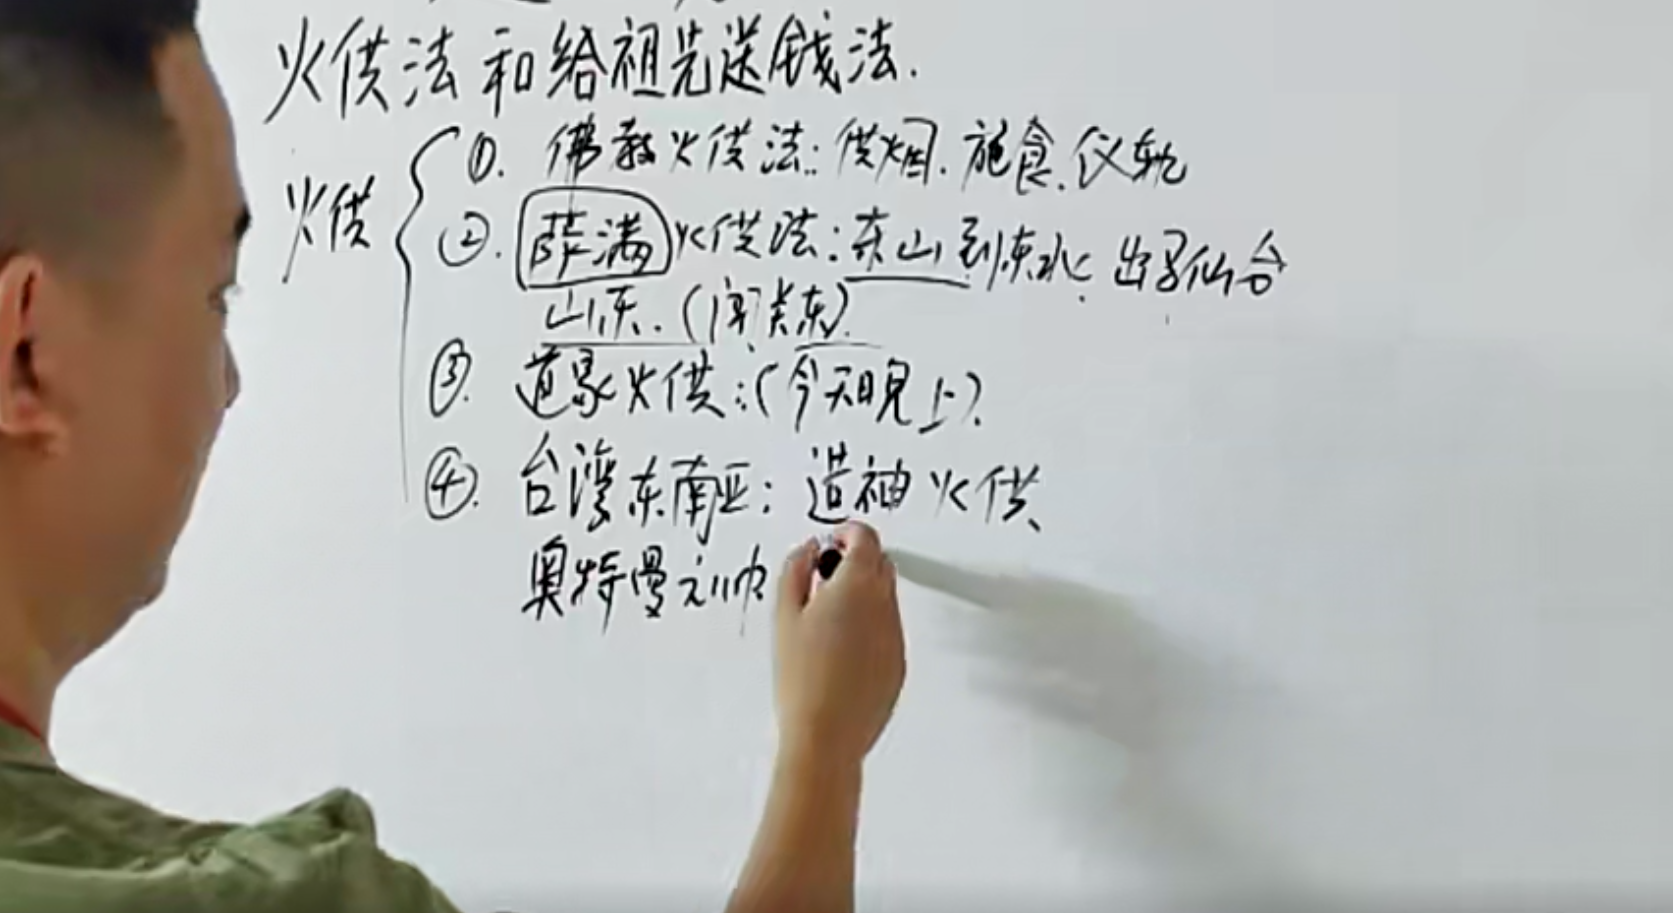 火供法和给祖先送钱法.
火供
①. 佛教火供法: 供烟. 施食. 仪轨
②. 萨满火供法: 东山到东水 出马仙台
山东. (闯关东).
③. 道家火供: (今天晚上).
④. 台湾东南亚: 造神火供、
奥特曼元帅